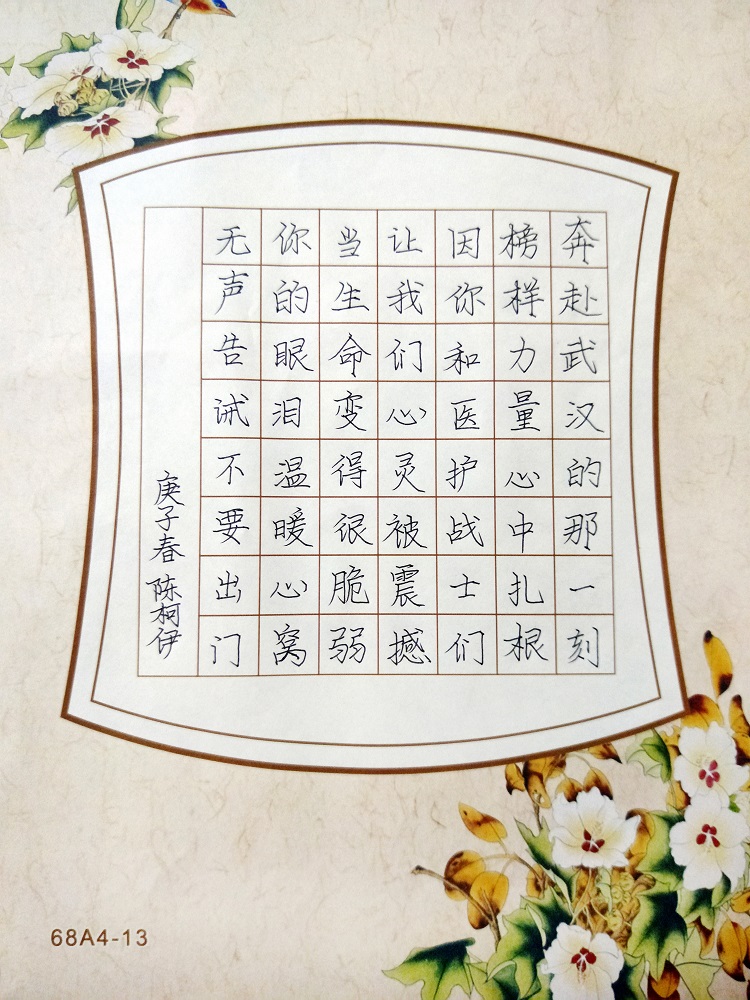 奔赴武汉的那一刻
榜样力量心中扎根
因你和医护战士们
让我们心灵被震撼
当生命变得很脆弱
你的眼泪温暖心窝
无声告诫不要出门
庚子春 陈柯伊
68A4-13